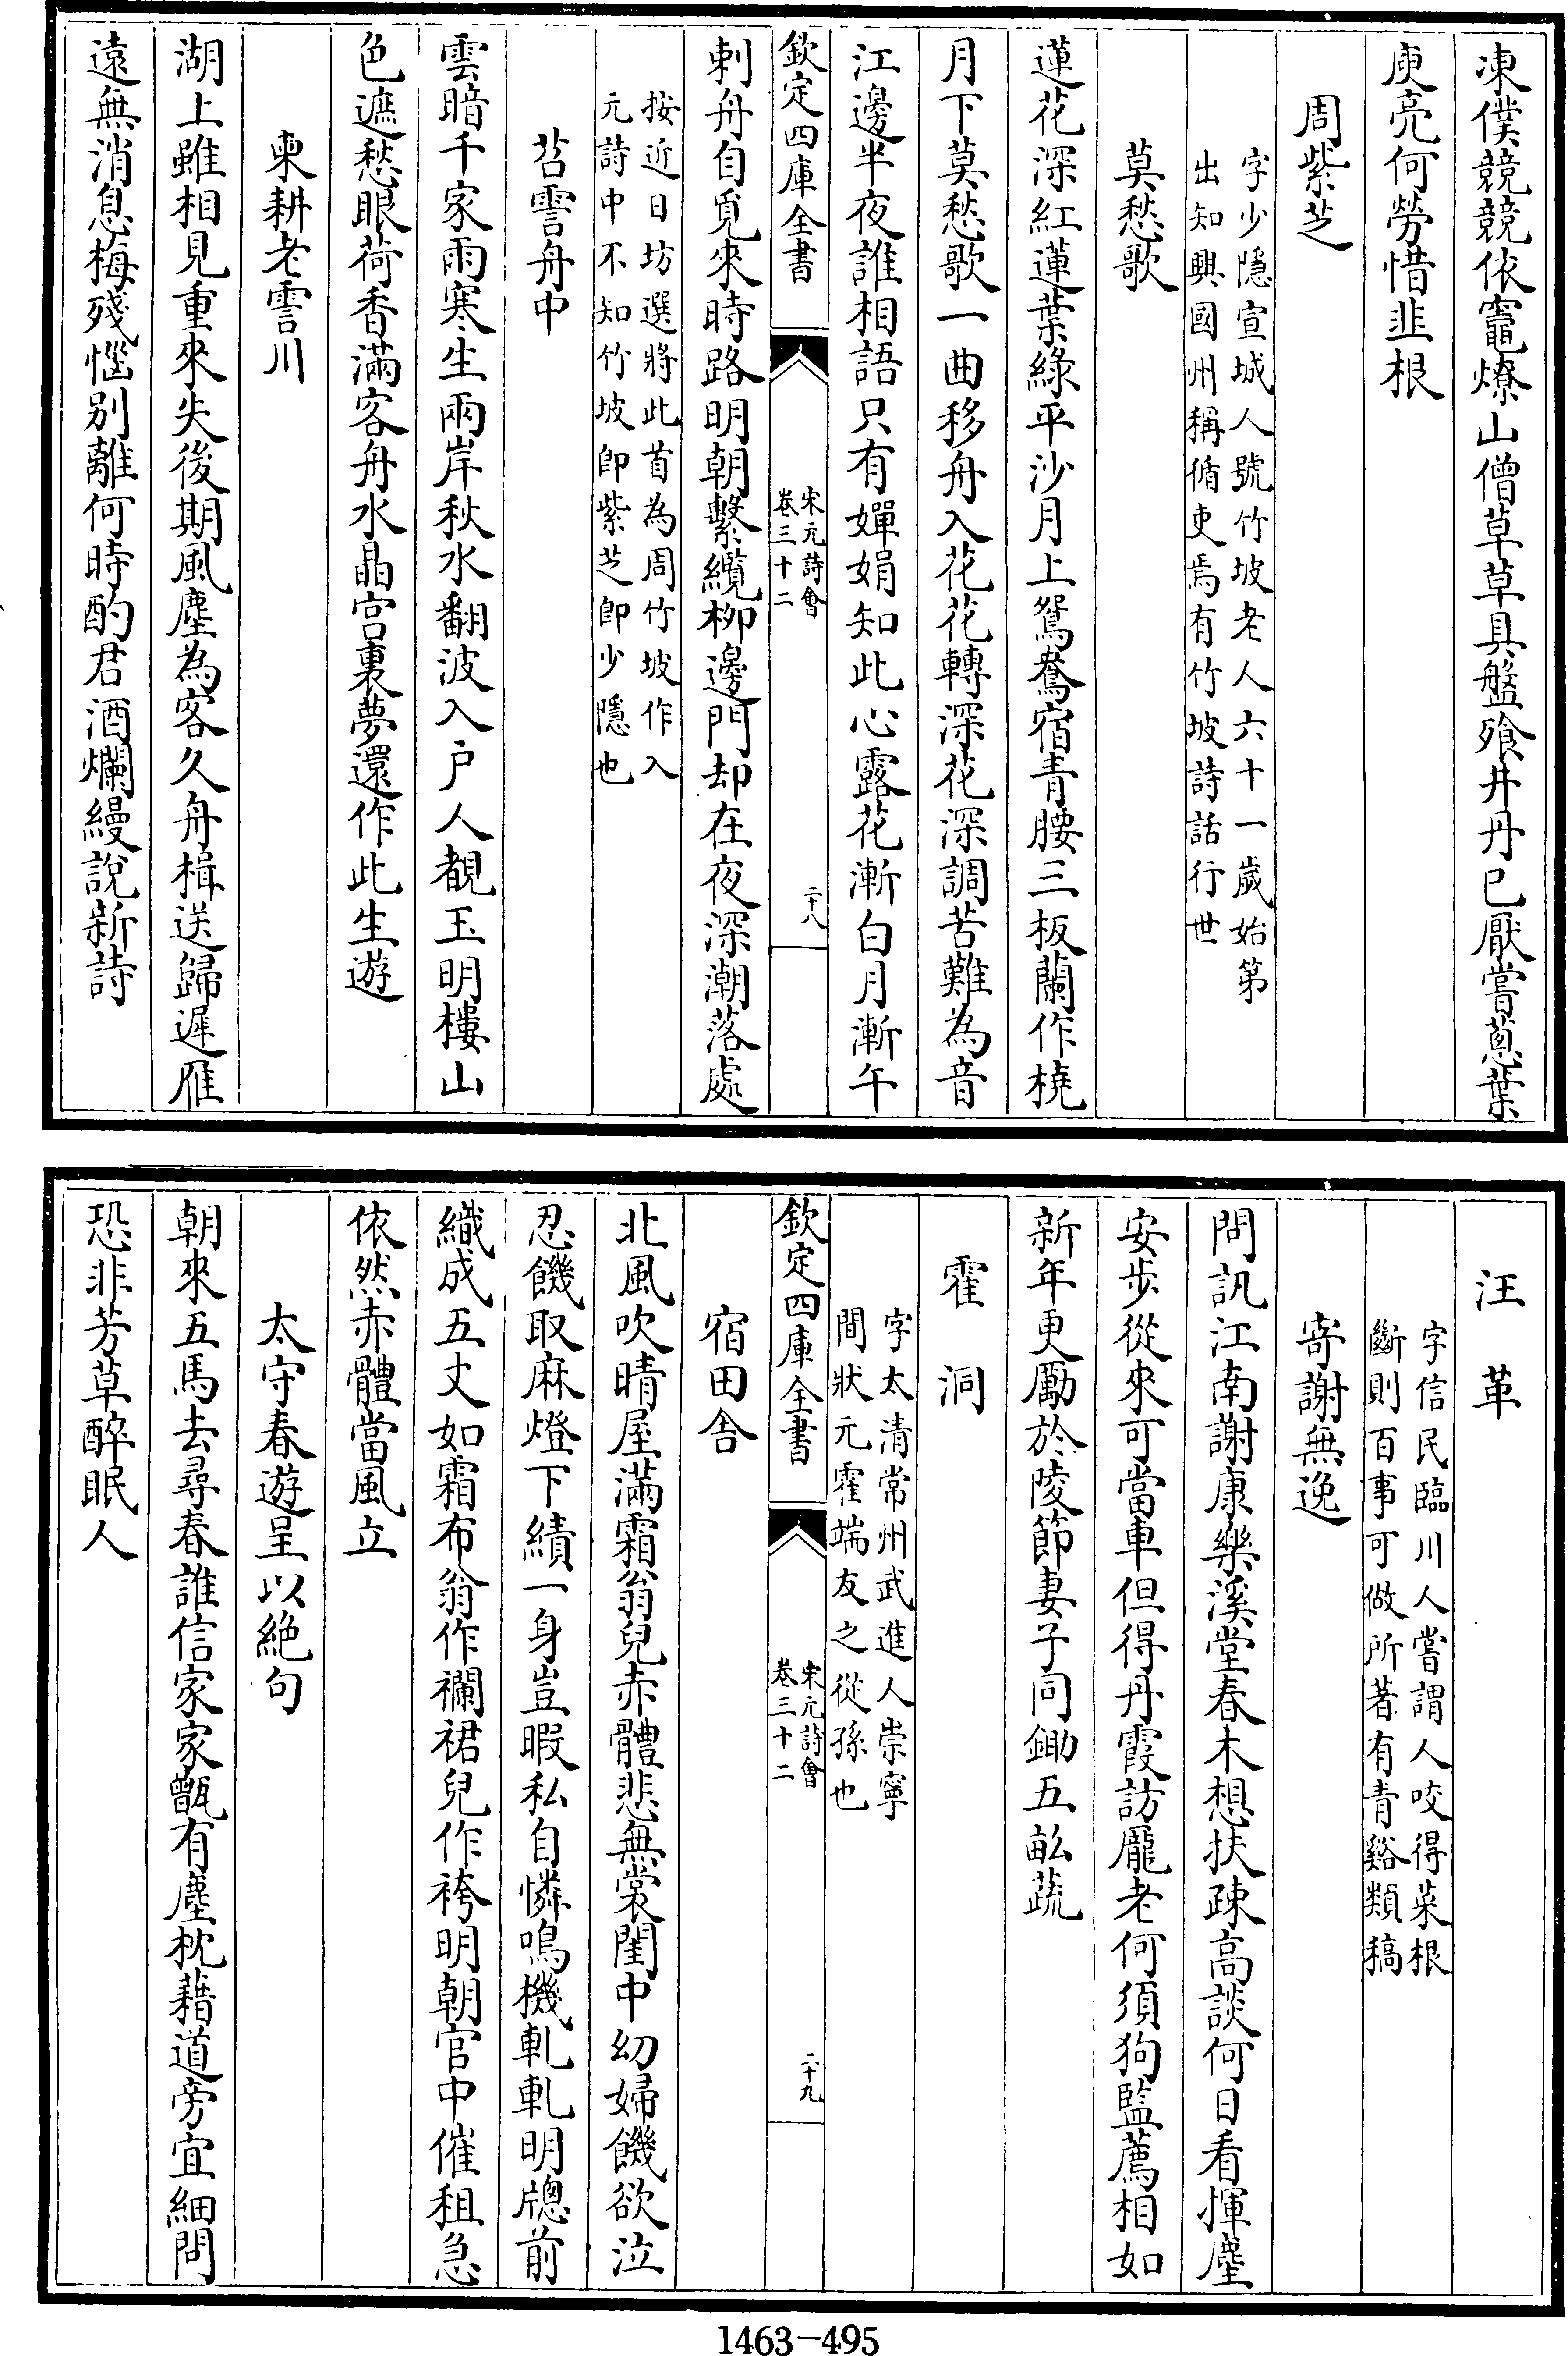 凍僕競競依竈燎山僧草草具盤飱井丹已厭嘗蔥葉
庾亮何勞惜韭根
周紫芝
字少隱宣城人號竹坡老人六十一歲始第
出知興國州稱循吏焉有竹坡詩話行世
莫愁歌
蓮花深紅蓮葉綠平沙月上鴛鴦宿青腰三板蘭作橈
月下莫愁歌一曲移舟入花花轉深花深調苦難為音
江邊半夜誰相語只有嬋娟知此心露花漸白月漸午
欽定四庫全書
宋元詩會
卷三十二
二十八
刺舟自覓來時路明朝繫纜柳邊門却在夜深潮落處
按近日坊選將此首為周竹坡作入
元詩中不知竹坡即紫芝即少隱也
苕霅舟中
雲暗千家雨寒生兩岸秋水翻波入户人覩玉明樓山
色遮愁眼荷香滿客舟水晶宫裏夢還作此生遊
柬耕老霅川
湖上雖相見重來失後期風塵為客久舟楫送歸遲雁
遠無消息梅殘惱别離何時酌君酒爛縵說新詩
汪革
字信民臨川人嘗謂人咬得菜根
斷則百事可做所著有青谿類稿
寄謝無逸
問訊江南謝康樂溪堂春木想扶疎高談何日看揮麈
安步從來可當車但得丹霞訪龐老何須狗監薦相如
新年更勵於陵節妻子同鋤五畝蔬
霍洞
字太清常州武進人崇寧
間狀元霍端友之從孫也
欽定四庫全書
宋元詩會
卷三十二
二十九
宿田舍
北風吹晴屋滿霜翁兒赤體悲無裳閨中幼婦饑欲泣
忍饑取麻燈下績一身豈暇私自憐鳴機軋軋明牕前
織成五丈如霜布翁作襴裙兒作袴明朝官中催租急
依然赤體當風立
太守春遊呈以絶句
朝來五馬去尋春誰信家家甑有塵枕藉道旁宜細問
恐非芳草醉眠人
1463-495